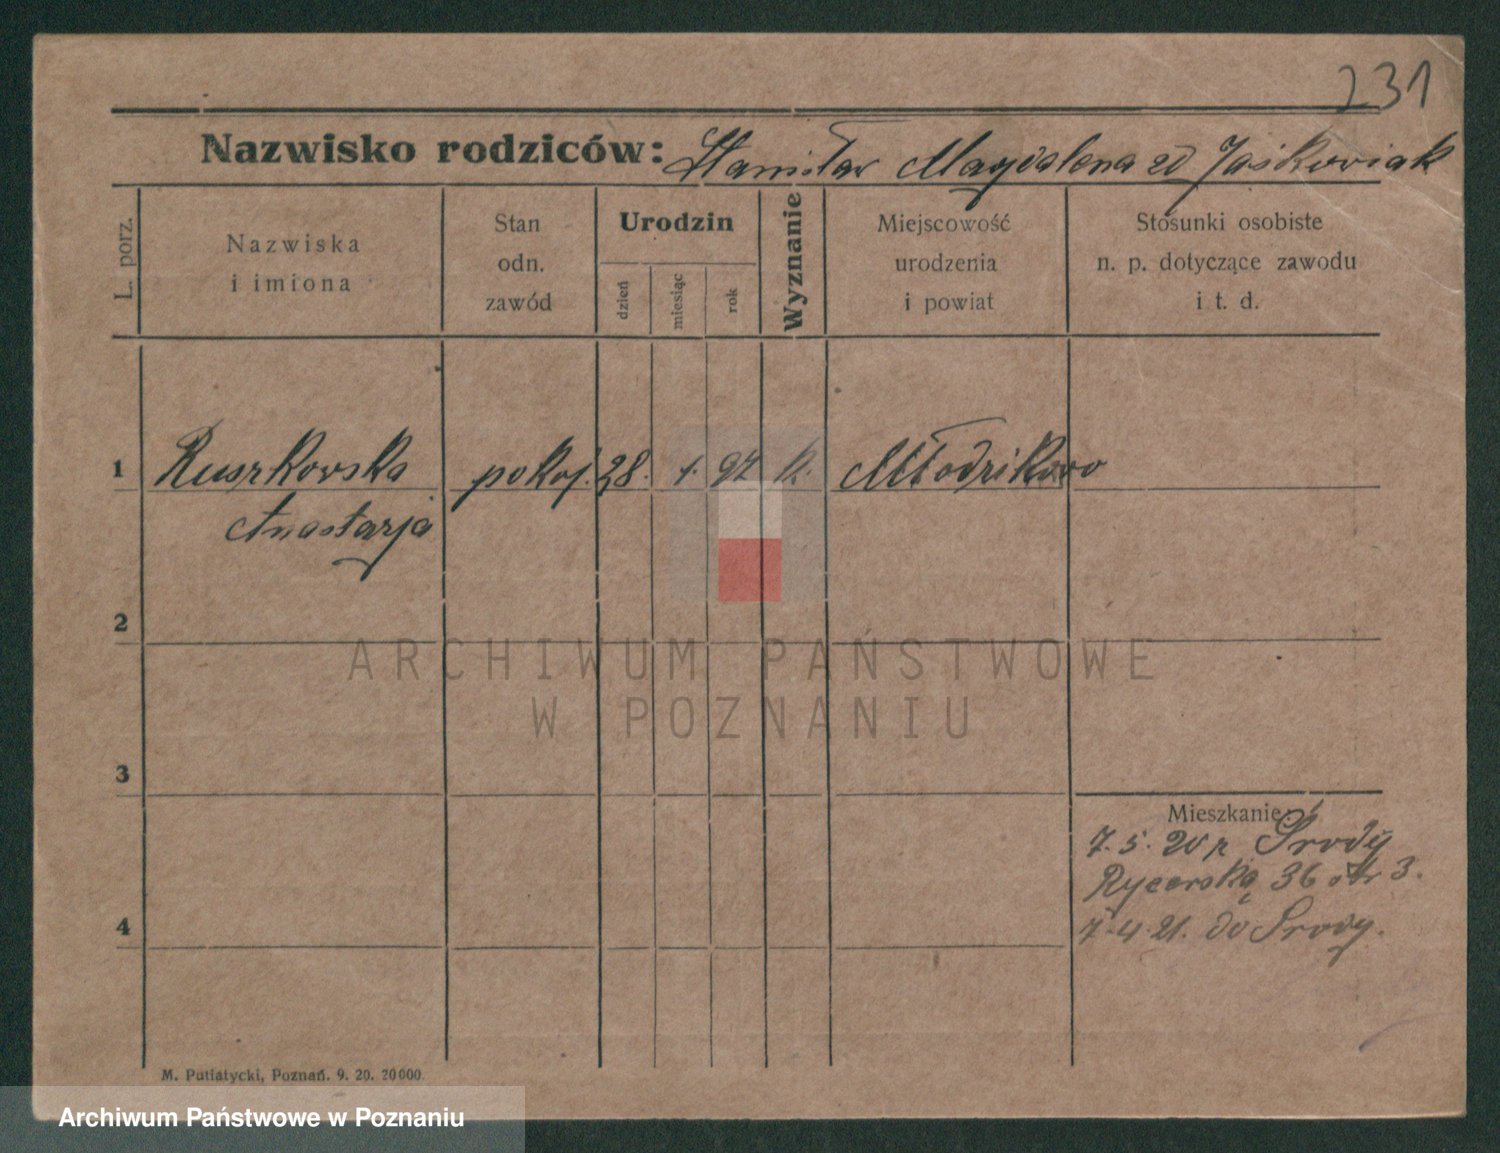 231
Nazwisko rodziców: Stanisław Magdalena zd Jaśkowiak
L. porz.
Nazwiska
i imiona
Stan
odn.
zawód
Urodzin
dzień
miesiąc
rok
Wyznanie
Miejscowość
urodzenia
i powiat
Stosunki osobiste
n. p. dotyczące zawodu
i t. d.
1 Ruszkowska pokoj. 28. 1. 97 k. Młodzikowo
Anastazja
2
ARCHIWUM PAŃSTWOWE
W POZNANIU
3
Mieszkanie:
7. 5. 20 z Środy
Rycerska 36 ptr 3.
4
7.4.21. do Środy.
M. Putiatycki, Poznań. 9. 20. 20000.
Archiwum Państwowe w Poznaniu